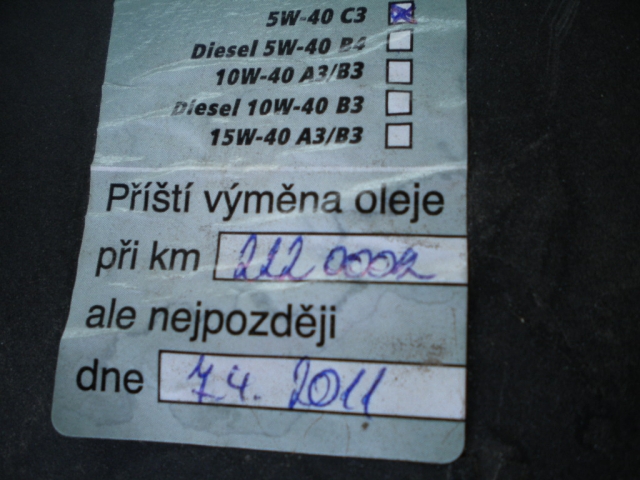 5W-40 C3
Diesel 5W-40 B4
10W-40 A3/B3
Diesel 10W-40 B3
15W-40 A3/B3
Příští výměna oleje
při km 222 000
ale nejpozději
dne 7.4. 2011